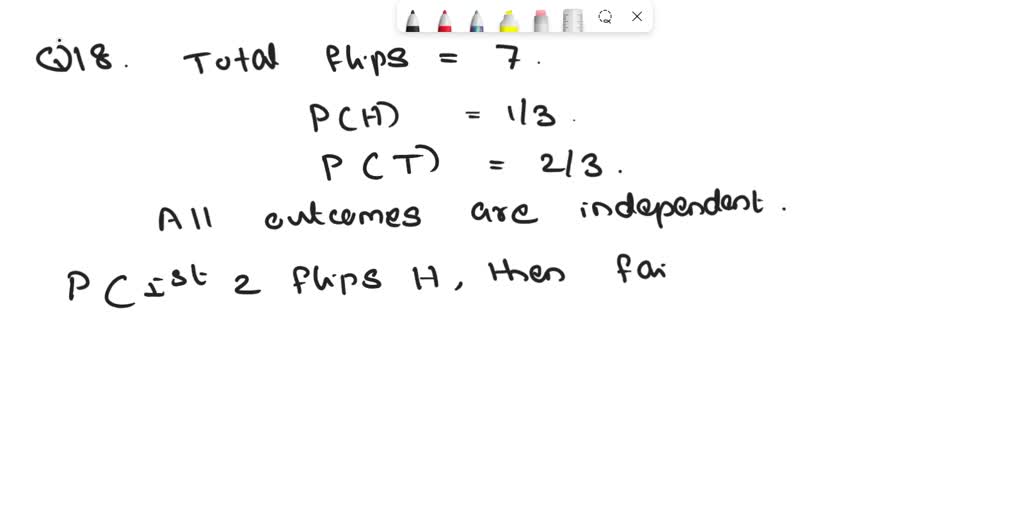 Q18. Total flips = 7.
P(H) = 1/3.
P(T) = 2/3.
All outcomes are independent.
P(1st 2 flips H, then fai